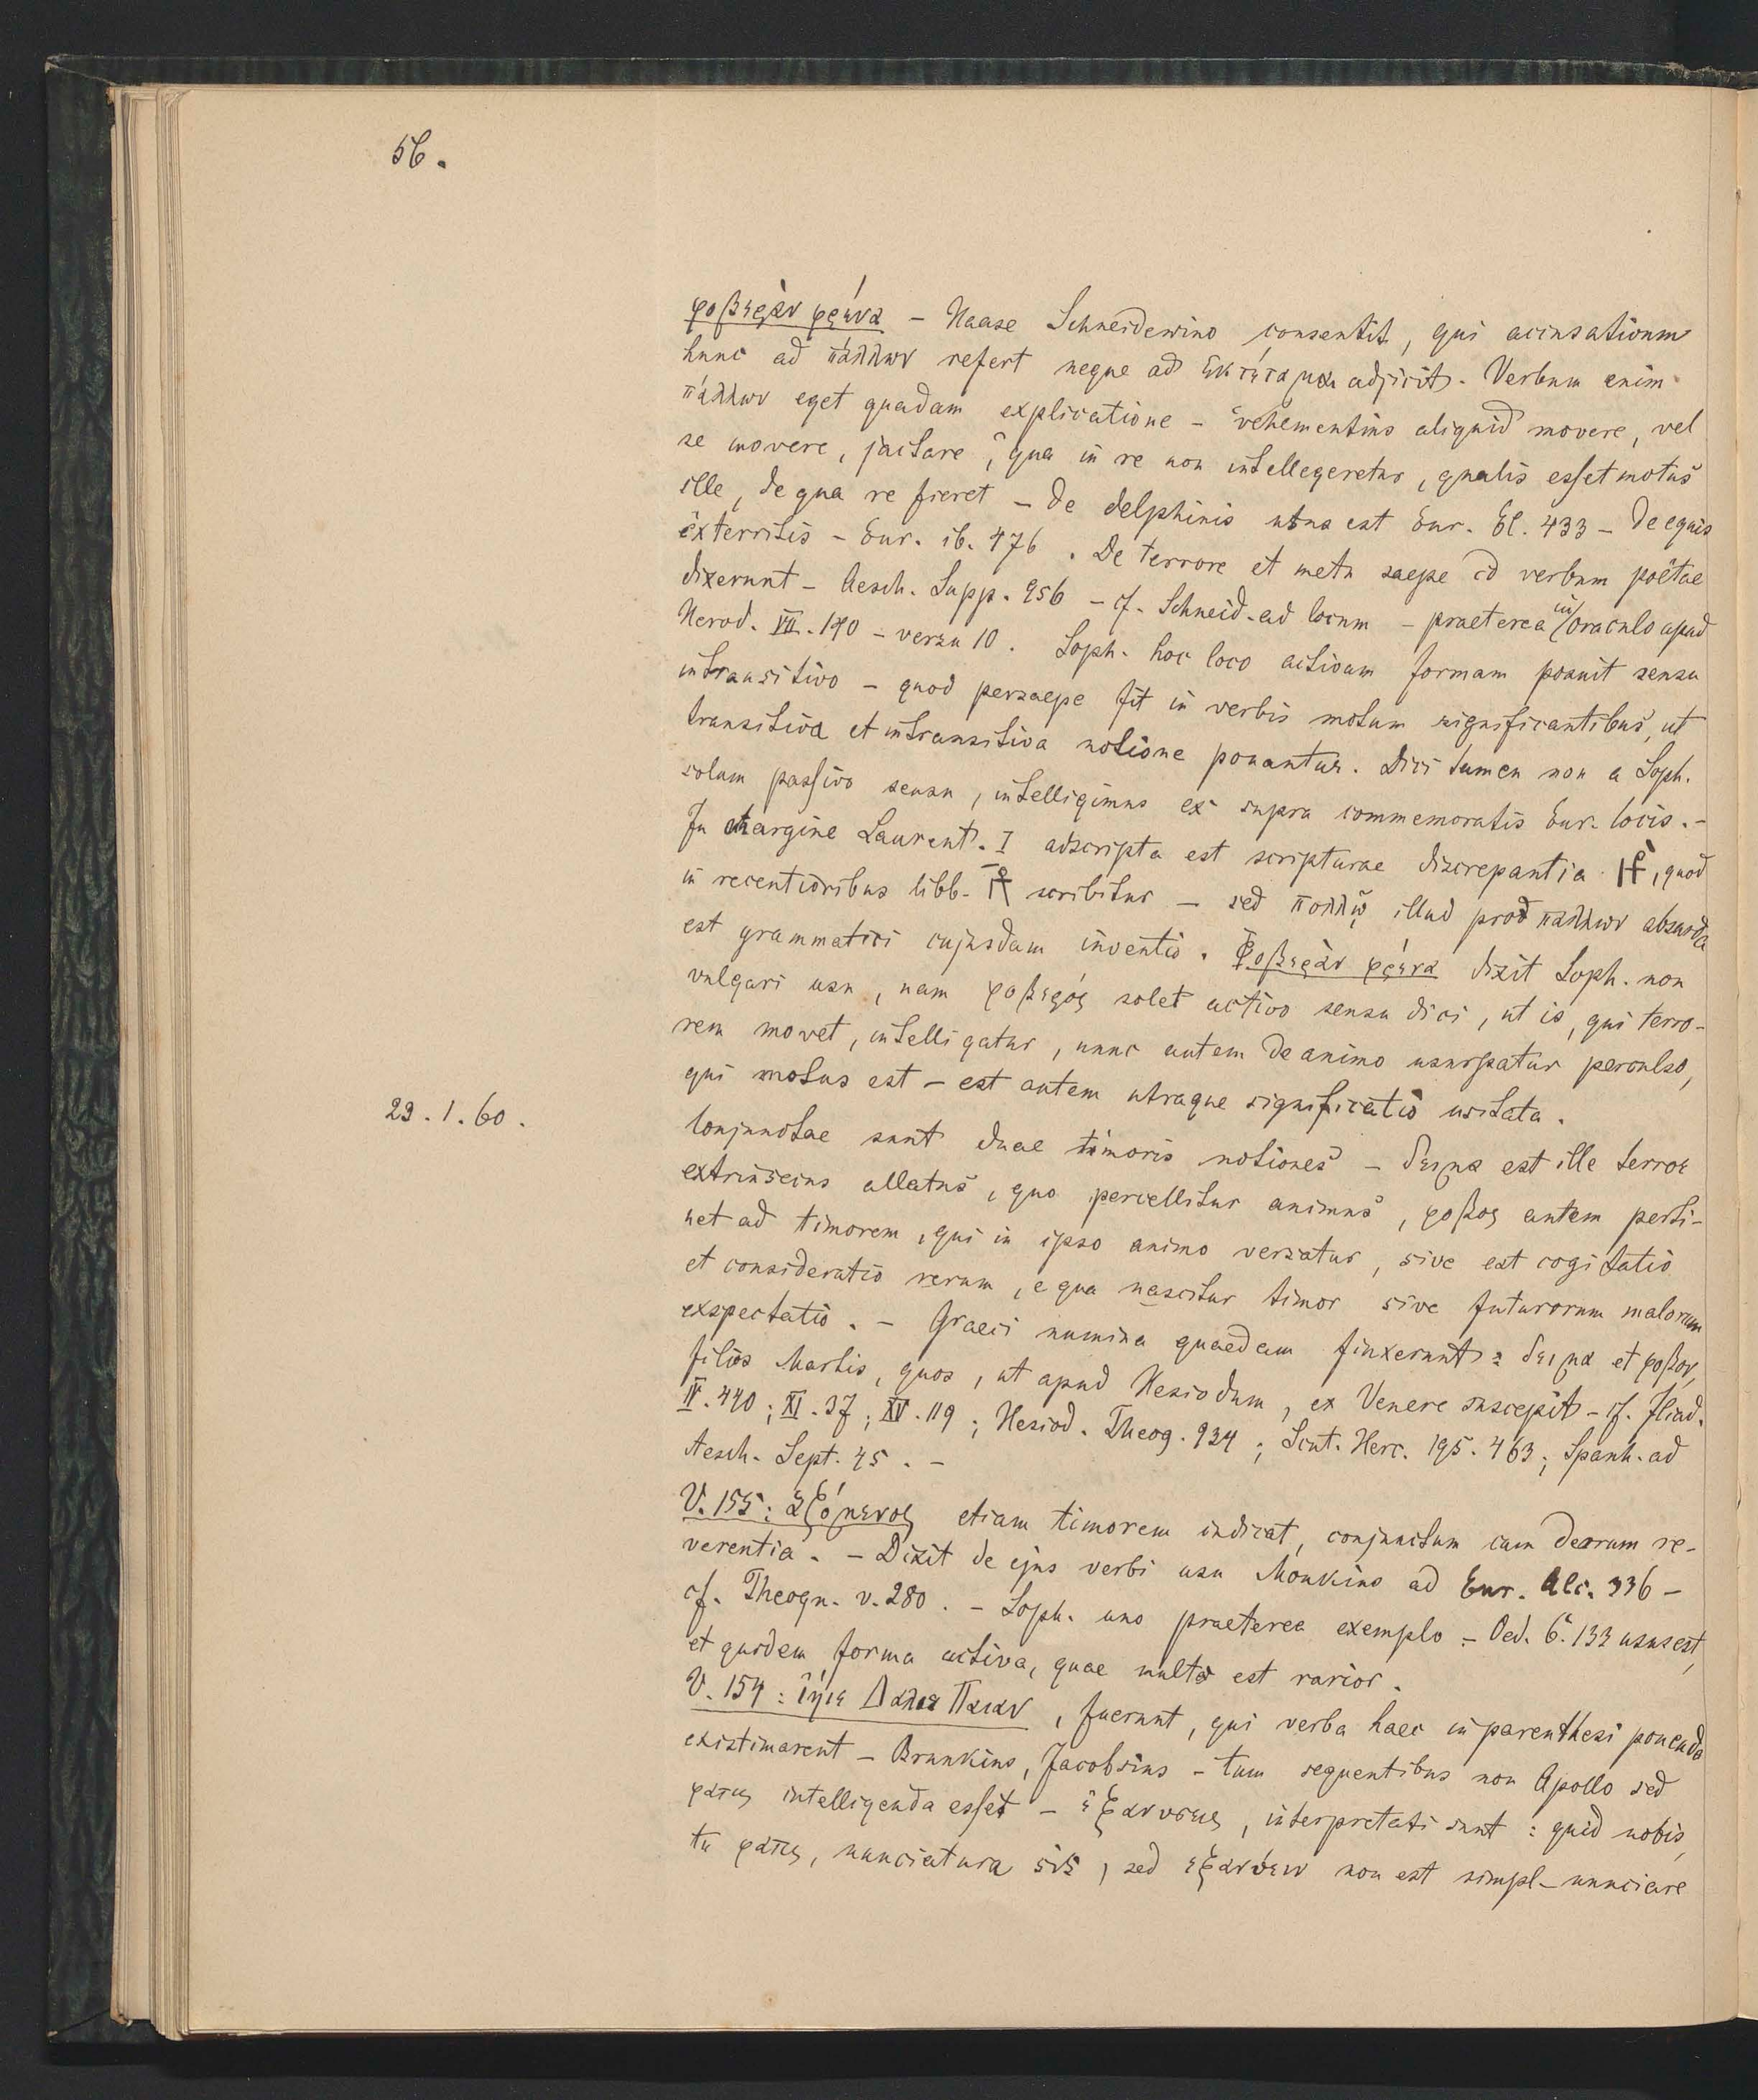 56.
φοβερὰν φρένα – Haase Schneidewino consentit, qui accusativum
hunc ad πάλλων refert neque ad ἐκτέταμαι adjicit. Verbum enim
πάλλων eget quadam explicatione – vehementius aliquid movere, vel
se movere, jactare, qua in re non intellegeretur, qualis esset motus
ille, de qua re fieret – de delphinis usus est Eur. El. 433 – de equis
exterritis – Eur. ib. 476. De terrore et metu saepe id verbum poëtae
dixerunt – Aesch. Supp. 956 – cf. Schneid. ad locum – praeterea in oraculo apud
Herod. VII. 140 – versu 10. Soph. hoc loco activam formam posuit sensu
intransitivo – quod persaepe fit in verbis motum significantibus, ut
transitiva et intransitiva notione ponantur. Dici tamen non a Soph.
solum passivo sensu, intelligimus ex supra commemoratis Eur. locis. –
In margine Laurent. I adscripta est scripturae discrepantia, quod
in recentioribus libb. scribitur – sed πολλῷ illud pro πάλλων absurda
est grammatici cujusdam inventio. Φοβερὰν φρένα dixit Soph. non
vulgari usu, nam φοβερός solet activo sensu dici, ut is, qui terro-
rem movet, intelligatur, nunc autem de animo usurpatur perculso,
qui motus est – est autem utraque significatio usitata.
23.1.60.
Conjunctae sunt duae timoris notiones – δειμα est ille terror
extrinsecus allatus, quo percellitur animus, φοβος autem perti-
net ad timorem, qui in ipso animo versatur, sive est cogitatio
et consideratio rerum, e qua nascitur timor sive futurorum malorum
exspectatio. – Graeci numina quaedam finxerunt: δειμα et φοβον,
filios Martis, quos, ut apud Hesiodum, ex Venere suscepit – cf. Iliad.
IV. 440; XI. 37; XV. 119; Hesiod. Theog. 934; Scut. Herc. 195. 463; Spanh. ad
Aesch. Sept. 45. –
V. 155: ἁζόμενος etiam timorem indicat, conjunctum cum deorum re-
verentia. – Dixit de ejus verbi usu Monkius ad Eur. Alc. 336 –
cf. Theogn. v. 280. – Soph. uno praeterea exemplo – Oed. C. 133 usus est,
et quidem forma activa, quae multo est rarior.
V. 154: ἰήιε Δαλιε Παιαν, fuerunt, qui verba haec in parenthesi ponenda
existimarent – Brunkius, Jacobsius – tum sequentibus non Apollo sed
φατις intelligenda esset – ἐξανυσεις, interpretati sunt: quid nobis,
tu φατις, nunciatura sis, sed ἐξανύειν non est simpl. nunciare